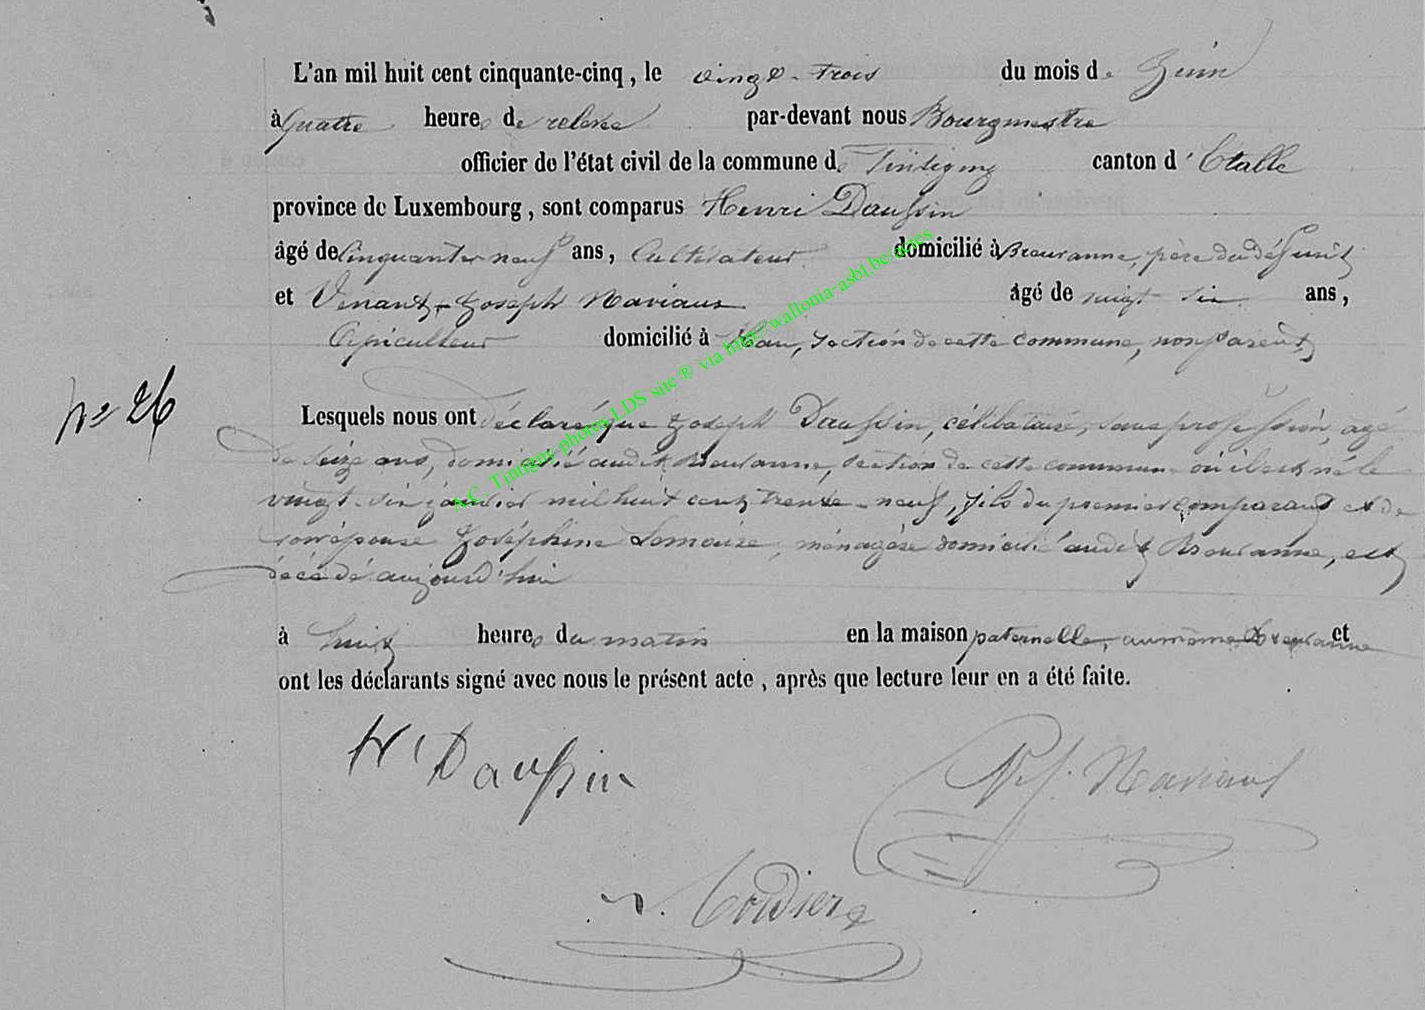 L'an mil huit cent cinquante-cinq, le vingt-trois du mois de Juin
à quatre heures de relevée par-devant nous Bourgmestre
officier de l'état civil de la commune de Tintigny canton d'Etalle
province de Luxembourg, sont comparus Henri Daussin
âgé de cinquante neuf ans, Cultivateur domicilié à Breuvanne, père du défunt,
et Venant-Joseph Naviaux âgé de vingt six ans,
Apiculteur domicilié à Han, section de cette commune, non parent,
N° 26
Lesquels nous ont déclaré que Joseph Daussin, célibataire, sans profession, agé
de seize ans, domicilié audit Breuvanne, section de cette commune où il est né le
vingt-six janvier mil huit cent trente-neuf, fils du premier comparant et de
son épouse Joséphine Lemoine, ménagère domicilié audit Breuvanne, est
décédé aujourd'hui
à huit heures du matin en la maison paternelle, au même Breuvanne et
ont les déclarants signé avec nous le présent acte, après que lecture leur en a été faite.
H Daussin
Naviaux
Cordier
A.C. Tintigny photos LDS site ® via http://wallonia-asbl.be/actes